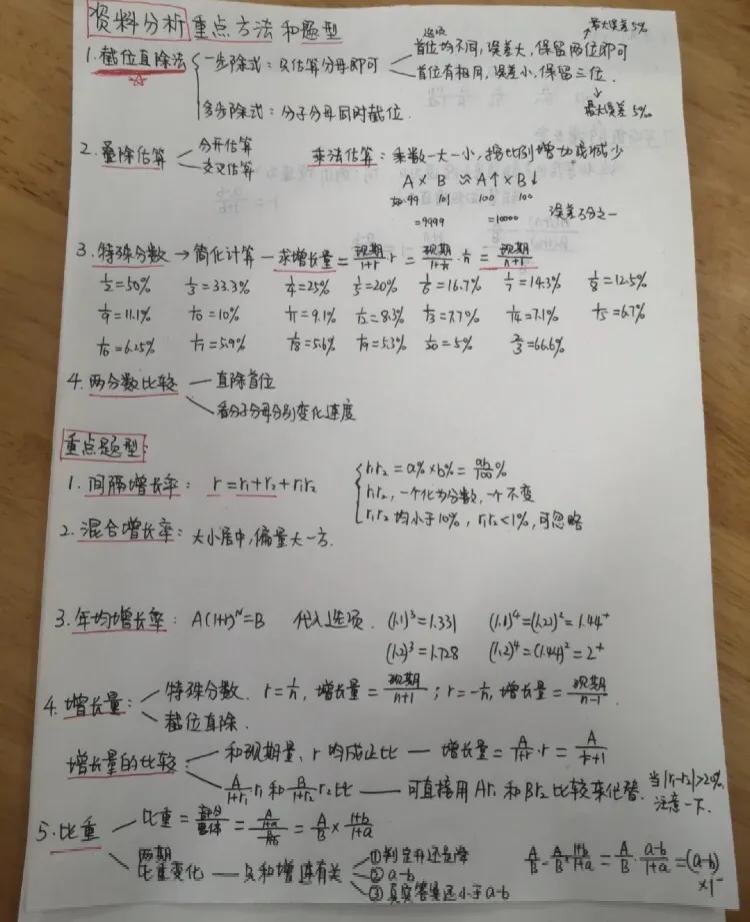 资料分析重点方法和题型
选项 最大误差5%
1.截位直除法 一步除式：只估算分母即可 首位均不同,误差大,保留两位即可
首位有相同,误差小,保留三位.
多步除式：分子分母同时截位. 最大误差5‰
2.叠除估算 分开估算
交叉估算
乘法估算：乘数一大一小,按比例增加或减少
A×B≈A↑×B↓
如:99 101 100 100
=9999 =10000 误差万分之一
3.特殊分数→简化计算—求增长量=现期/1+r·r=现期/1+1/n·1/n=现期/n+1
1/2=50% 1/3=33.3% 1/4=25% 1/5=20% 1/6=16.7% 1/7=14.3% 1/8=12.5%
1/9=11.1% 1/10=10% 1/11=9.1% 1/12=8.3% 1/13=7.7% 1/14=7.1% 1/15=6.7%
1/16=6.25% 1/17=5.9% 1/18=5.6% 1/19=5.3% 1/20=5% 2/3=66.6%
4.两分数比较 —直除首位
—看分子分母分别变化速度
重点题型:
1.间隔增长率：r=r₁+r₂+r₁r₂
r₁r₂=a%×b%=ab/100%
r₁r₂,一个化为分数,一个不变
r₁r₂均小于10%,r₁r₂<1%,可忽略
2.混合增长率：大小居中,偏量大一方.
3.年均增长率：A(1+r)ᴺ=B 代入选项. (1.1)³=1.331 (1.1)⁴=(1.21)²=1.44⁺
(1.2)³=1.728 (1.2)⁴=(1.44)²=2⁺
4.增长量：特殊分数. r=1/n,增长量=现期/n+1；r=-1/n,增长量=现期/n-1.
截位直除.
增长量的比较：和现期量、r均成正比—增长量=A/1+r·r=A/+1
A/1+r₁ r₁和B/1+r₂ r₂比——可直接用Ar₁和Br₂比较来代替. 当|r₁-r₂|>20%,
注意一下.
5.比重 比重=部分/整体==A/B×1+b/1+a
两期
比重变化—只和增速有关 ①判定升还是降
②a-b
③真实答案还小于a-b
A/B-A/B·1+b/1+a=A/B·a-b/1+a=(a-b)
×1⁻